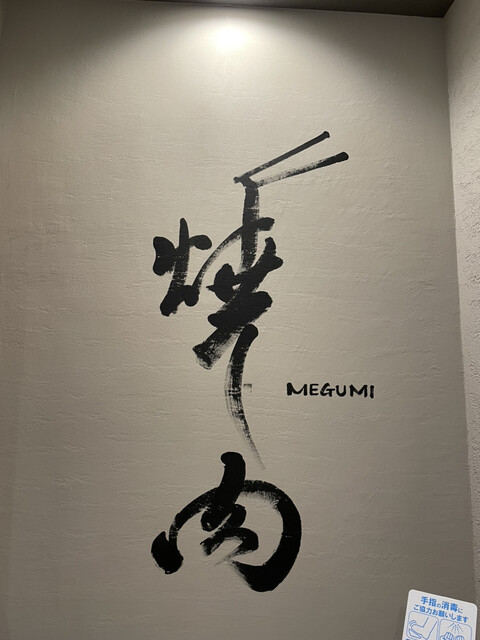 焼肉
MEGUMI
手指の消毒に
ご協力お願いします